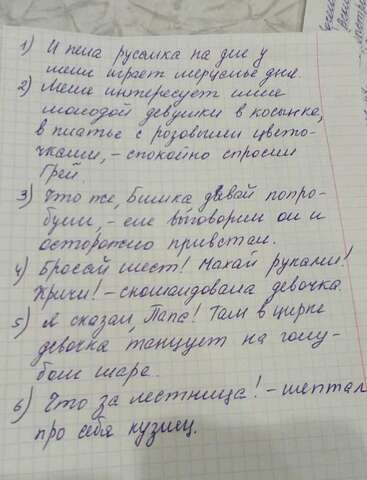 1) И пела русалка на дне у
меня играет мерцанье дня.
2) Меня интересует имя
молодой девушки в косынке,
в платье с розовыми цвето-
чками, – спокойно спросил
Грей.
3) Что же, Бимка давай попро-
буем, – еле выговорил он и
осторожно привстал.
4) Бросай шест! Махай руками!
Кричи! – скомандовала девочка.
5) Я сказал, Папа! Там в цирке
девочка, танцует на голу-
бом шаре.
6) Что за лестница! – шептал
про себя кузнец.